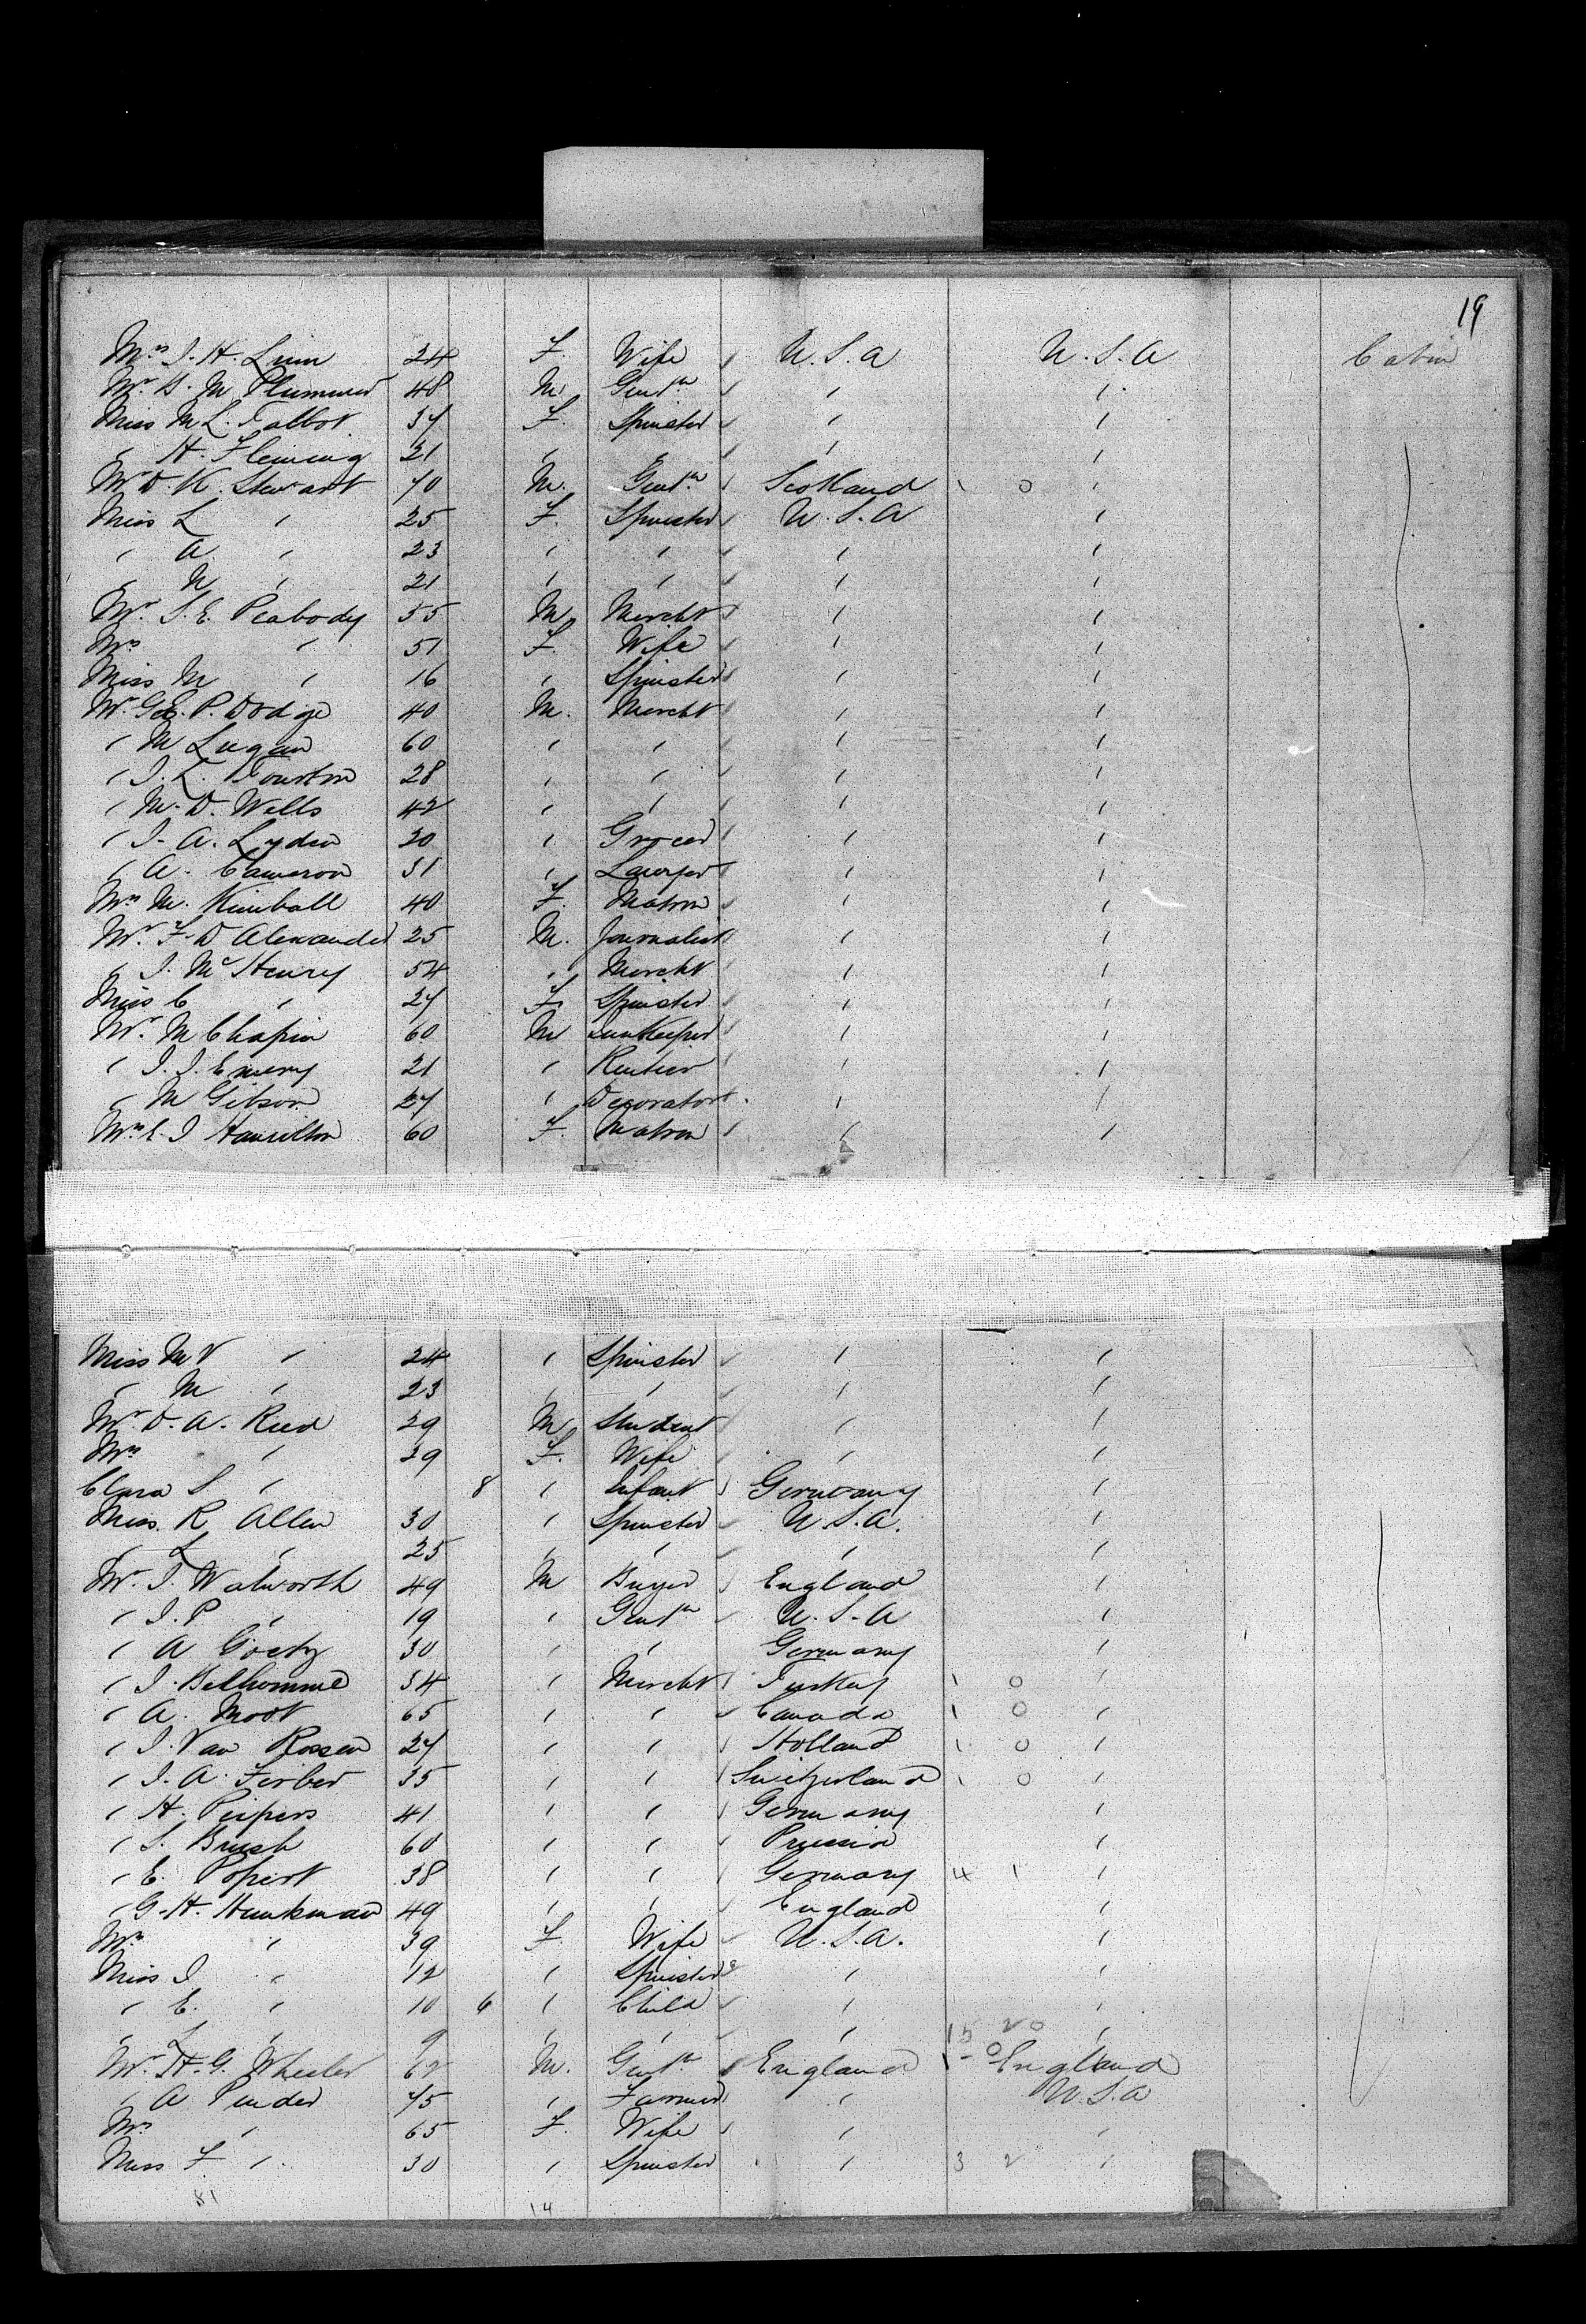 19
Mrs J. H. Linn 24 F. Wife U.S.A U.S.A Cabin
Mr B. M Plummer 48 M. Gentn " "
Miss M L. Talbot 37 F. Spinster " "
" H. Fleming 21 " " " "
Mr D. K. Stewart 70 M. Gentn Scotland 1 0 "
Miss L " 25 F. Spinster U.S.A "
" A " 23 " " " "
" N " 21 " " " "
Mr. S. E. Peabody 55 M Mercht " "
Mrs " 51 F. Wife " "
Miss M " 16 " Spinster " "
Mr. Geo. P. Dodge 40 M. Mercht " "
" M Lugan 60 " " " "
" J. L. 28 " " " "
" M. D. Wells 42 " " " "
" J. A. Lyden 30 " Grocer " "
" A. Cameron 31 " Lawyer " "
Mrs M. Kimball 40 F. Matron " "
Mr. F. D Alexander 25 M. Journalist " "
" J. McHenry 54 " Mercht " "
Miss C " 27 F. Spinster " "
Mr. M Chapin 60 M InnKeeper " "
" J. J. Emery 21 " Rentier " "
" M Gibson 27 " Decorator " "
Mrs E. J Hamilton 60 F. Matron " "
Miss M V " 24 " Spinster " "
" M " 23 " " " "
Mr. D. A. Reed 29 M Student " "
Mrs " 29 F. Wife " "
Clara S " 8 " Infant Germany "
Miss. R Allen 30 " Spinster U.S.A. "
" L " 25 " " " "
Mr. J. Walworth 49 M Buyer England "
" J. P " 19 " Gentn U.S.A "
" A Goetz 30 " " Germany "
" J. Belhomme 34 " Mercht Turkey 1 0 "
" A. Moot 65 " " Canada 1 0 "
" J. Van Rossen 27 " " Holland 1 0 "
" J. A. Ferber 35 " " Switzerland 1 0 "
" H. Peipers 41 " " Germany "
" S. Brush 60 " " Prussia "
" E. Popert 38 " " Germany 4 1 "
" G. H. Hunkman 49 " " England "
Mrs " 39 F. Wife U.S.A. "
Miss J " 12 " Spinster " "
" E. " 10 6 " Child " "
" L " 9 " " " 15 20 "
Mr. H. G. Wheeler 62 M. Gentn England 1 - 0 England
" A Pender 75 " Farmer " U.S.A
Mrs " 65 F. Wife " "
Miss F " 30 " Spinster " 3 2 "
81 14